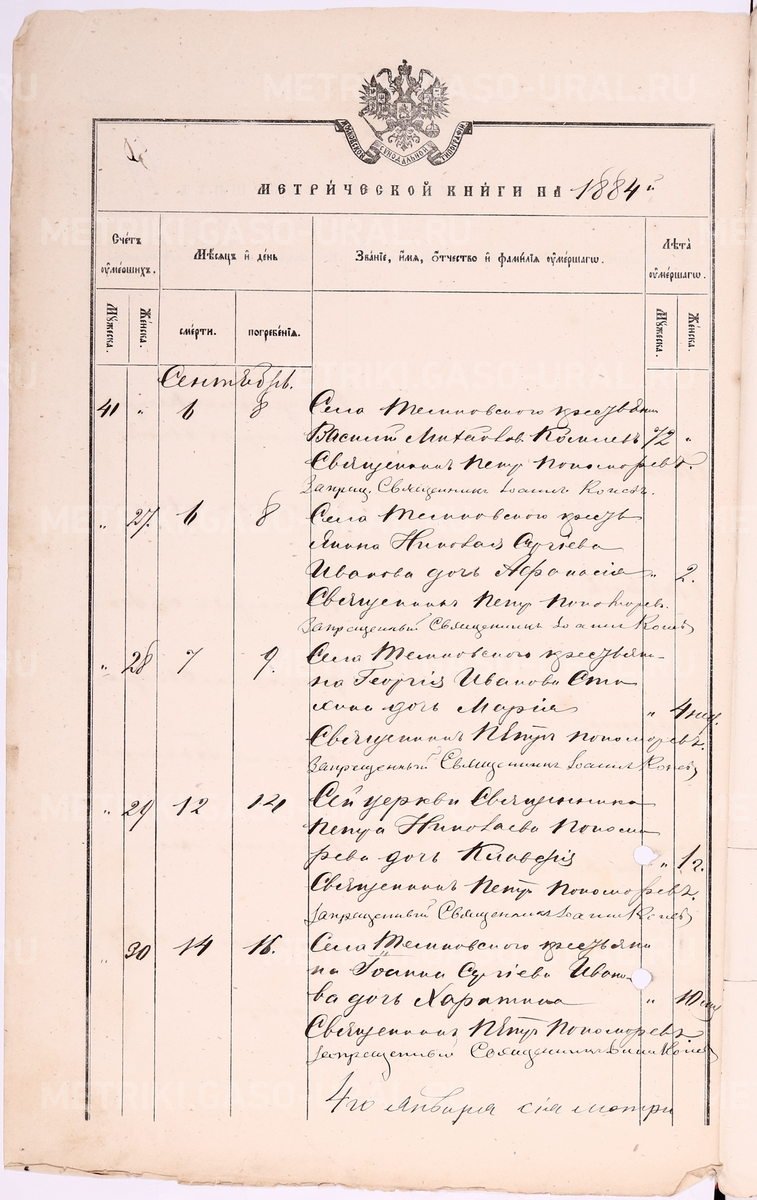 METRIKI.GASO-URAL.RU
МОСКОВСКОЙ СѴНОДАЛЬНОЙ ТИПОГРАФІИ
МЕТРИ́ЧЕСКОЙ КНИ́ГИ НА 1884 й
Сче́тъ ѹме́ршихъ.
Мѣ́сяцъ и҆ де́нь
Зва́нїе, и҆́мя, ѻ҆́тчество и҆ фами́лїя ѹме́ршагѡ.
Лѣ́та ѹме́ршагѡ.
Мꙋ́жеска.
Же́нска.
сме́рти.
погребе́нїя.
Мꙋ́жеска.
Же́нска.
Сентябрь.
41 " 6 8 Села крестьянин
Василий Михайлов 72 "
Священникъ Петръ Пономаревъ.
Запрещ. Священникъ Іоаннъ
" 27. 6 8 Села кресть
янина Николая Сергіева
Иванова дочь Афанасія " 2.
Священникъ Петр Пономарев.
Запрещенный Священникъ Іоаннъ
" 28 7 9. Села крестьяни-
на Георгія Иванова
дочь Марія " 4 нед.
Священникъ Пётръ Пономаревъ.
Запрещенный Священникъ Іоаннъ
" 29 12 14 Сей церкви Священника
Петра Николаева Понома
рева дочь Клавдія " 1 г.
Священникъ Петръ Пономаревъ.
Запрещенный Священникъ Іоаннъ
" 30 14 16. Села крестьяни
на Іоанна Сергіева Ивано
ва дочь Харитина " 10
Священникъ Пётръ Пономаревъ
Запрещенный Священникъ Іоаннъ
4го Января